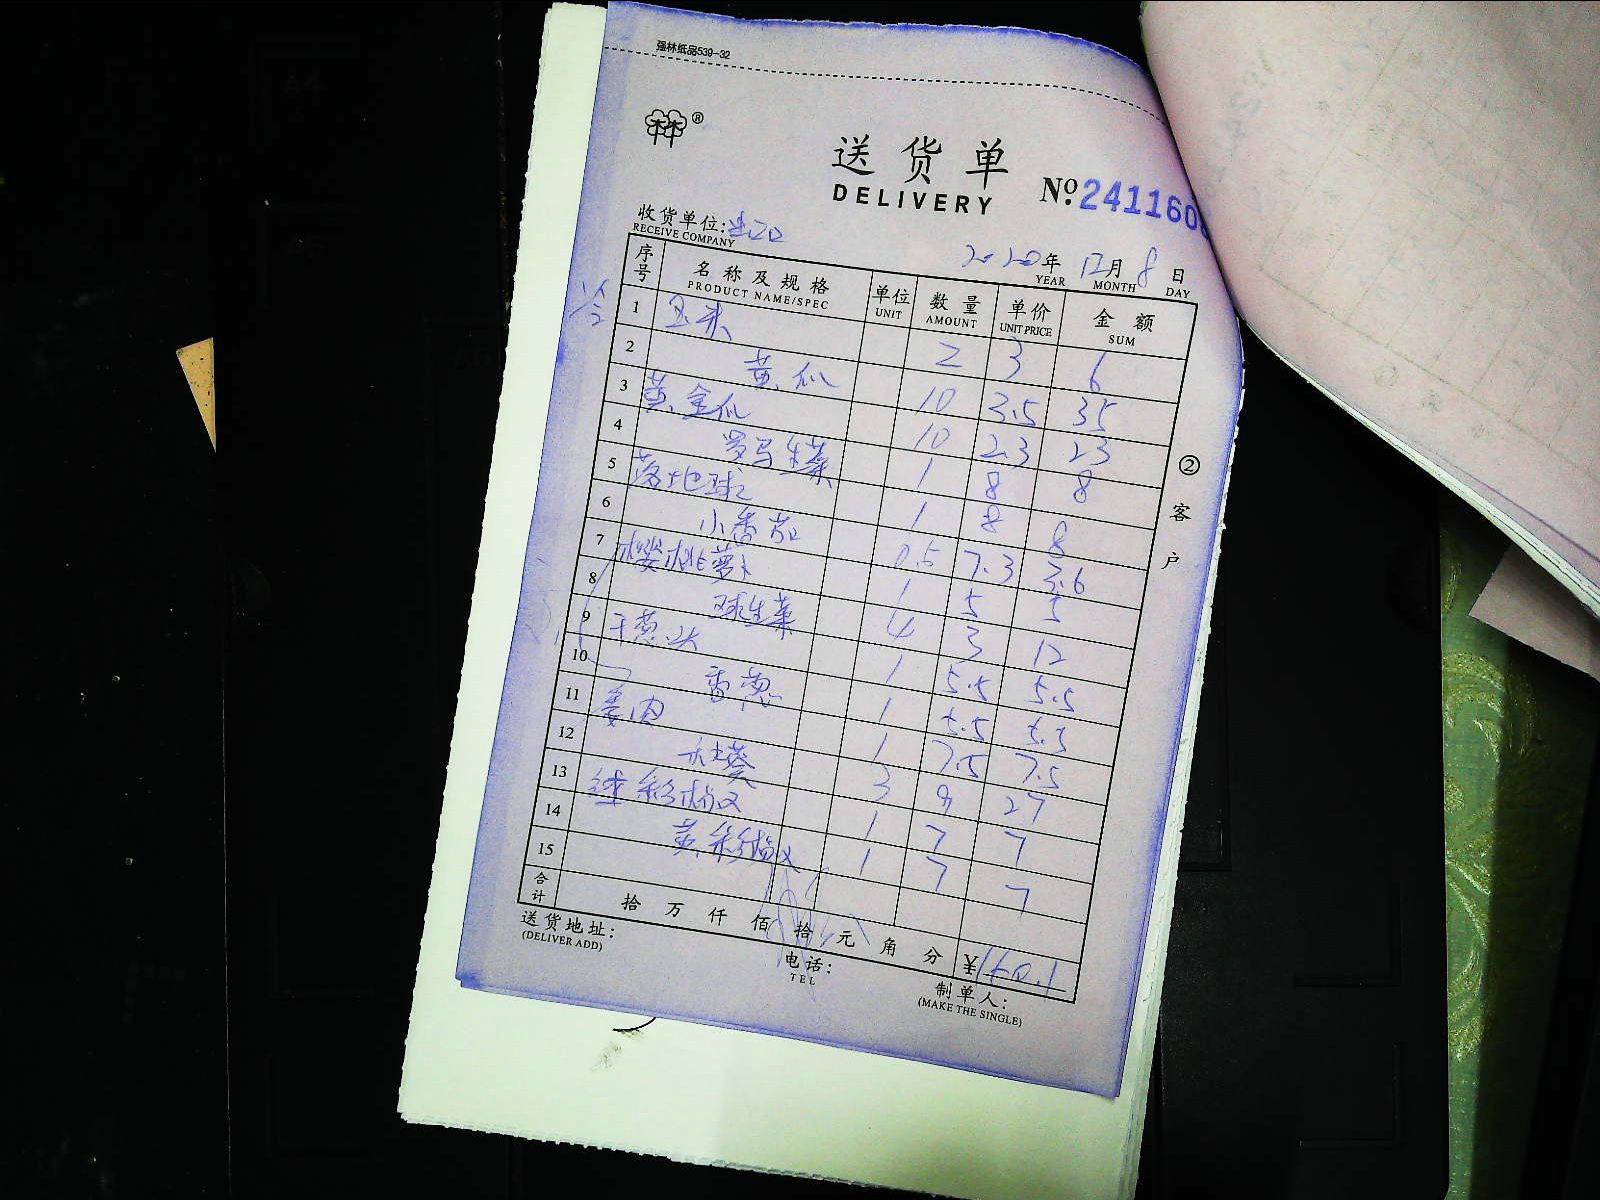 强林纸品539-32
送货单
DELIVERY
№.241160
收货单位:
RECEIVE COMPANY
2020年 12月 8日
YEAR MONTH DAY
序号 名称及规格 单位 数量 单价 金额
PRODUCT NAME/SPEC UNIT AMOUNT UNIT PRICE SUM
冷
1 玉米 2 3 6
2 黄瓜 10 3.5 35
3 黄金瓜 10 2.3 23
4 罗马生菜 1 8 8
5 落地球 1 8 8
6 小番茄 0.5 7.3 3.6
7 樱桃萝卜 1 5 5
8 球生菜 4 3 12
9 干葱头 1 5.5 5.5
10 香葱 1 5.5 5.5
11 姜肉 1 7.5 7.5
12 3 9 27
13 红彩椒 1 7 7
14 黄彩椒 1 7 7
15
合计 拾 万 仟 佰 拾 元 角 分 ¥160.1
送货地址:
(DELIVER ADD)
电话:
TEL
制单人:
(MAKE THE SINGLE)
②客户